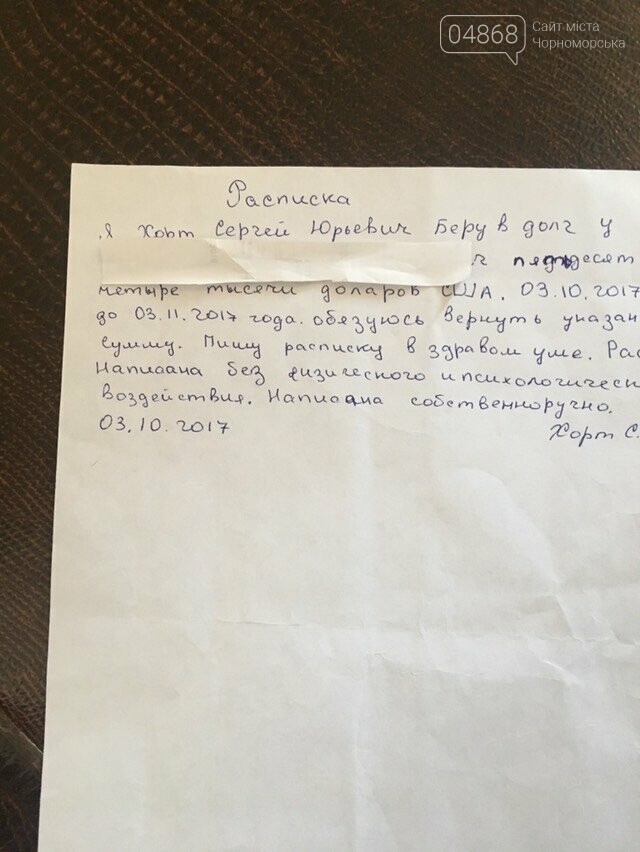 04868 Сайт міста
Чорноморська
Расписка
Я Хорт Сергей Юрьевич Беру в долг у
ч пядьдесят
четыре тысячи доларов США. 03.10.2017
до 03.11.2017 года. обязуюсь вернуть указан
сумму. Пишу расписку в здравом уме. Рас
Написана без физического и психологическ
воздействия. Написана собственноручно.
03.10.2017 Хорт С.